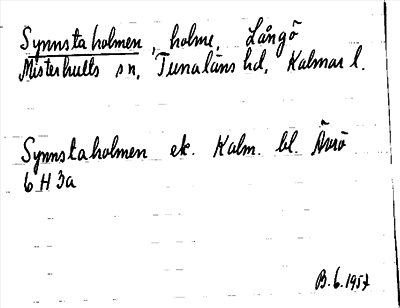 Synnstaholmen, holme, Långö
Misterhults sn, Tunaläns hd, Kalmar l.
Synnstaholmen ek. Kalm. bl. Ävrö
6 H 3a
B. 6. 1957